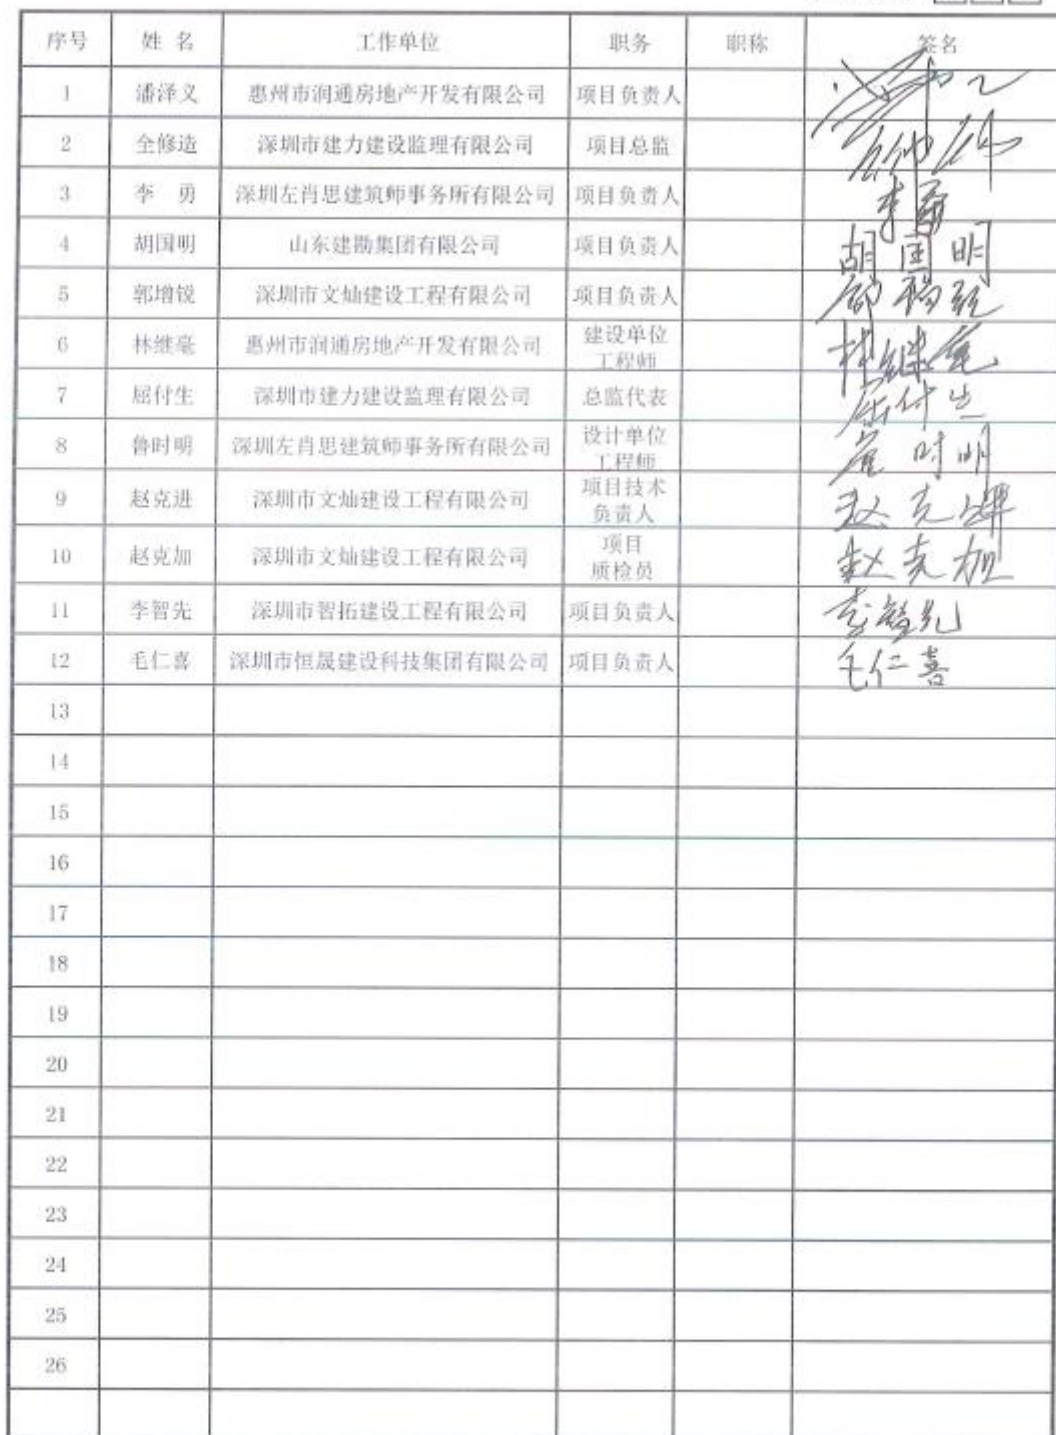 序号 姓 名 工作单位 职务 职称 签名
1 潘泽义 惠州市润通房地产开发有限公司 项目负责人
2 全修造 深圳市建力建设监理有限公司 项目总监
3 李 勇 深圳左肖思建筑师事务所有限公司 项目负责人 李勇
4 胡国明 山东建勘集团有限公司 项目负责人 胡国明
5 郭增锐 深圳市文灿建设工程有限公司 项目负责人
6 林继毫 惠州市润通房地产开发有限公司 建设单位
工程师 林继毫
7 屈付生 深圳市建力建设监理有限公司 总监代表 屈付生
8 鲁时明 深圳左肖思建筑师事务所有限公司 设计单位
工程师 鲁时明
9 赵克进 深圳市文灿建设工程有限公司 项目技术
负责人 赵克
10 赵克加 深圳市文灿建设工程有限公司 项目
质检员 赵克加
11 李智先 深圳市智拓建设工程有限公司 项目负责人 李智先
12 毛仁喜 深圳市恒晟建设科技集团有限公司 项目负责人 毛仁喜
13
14
15
16
17
18
19
20
21
22
23
24
25
26